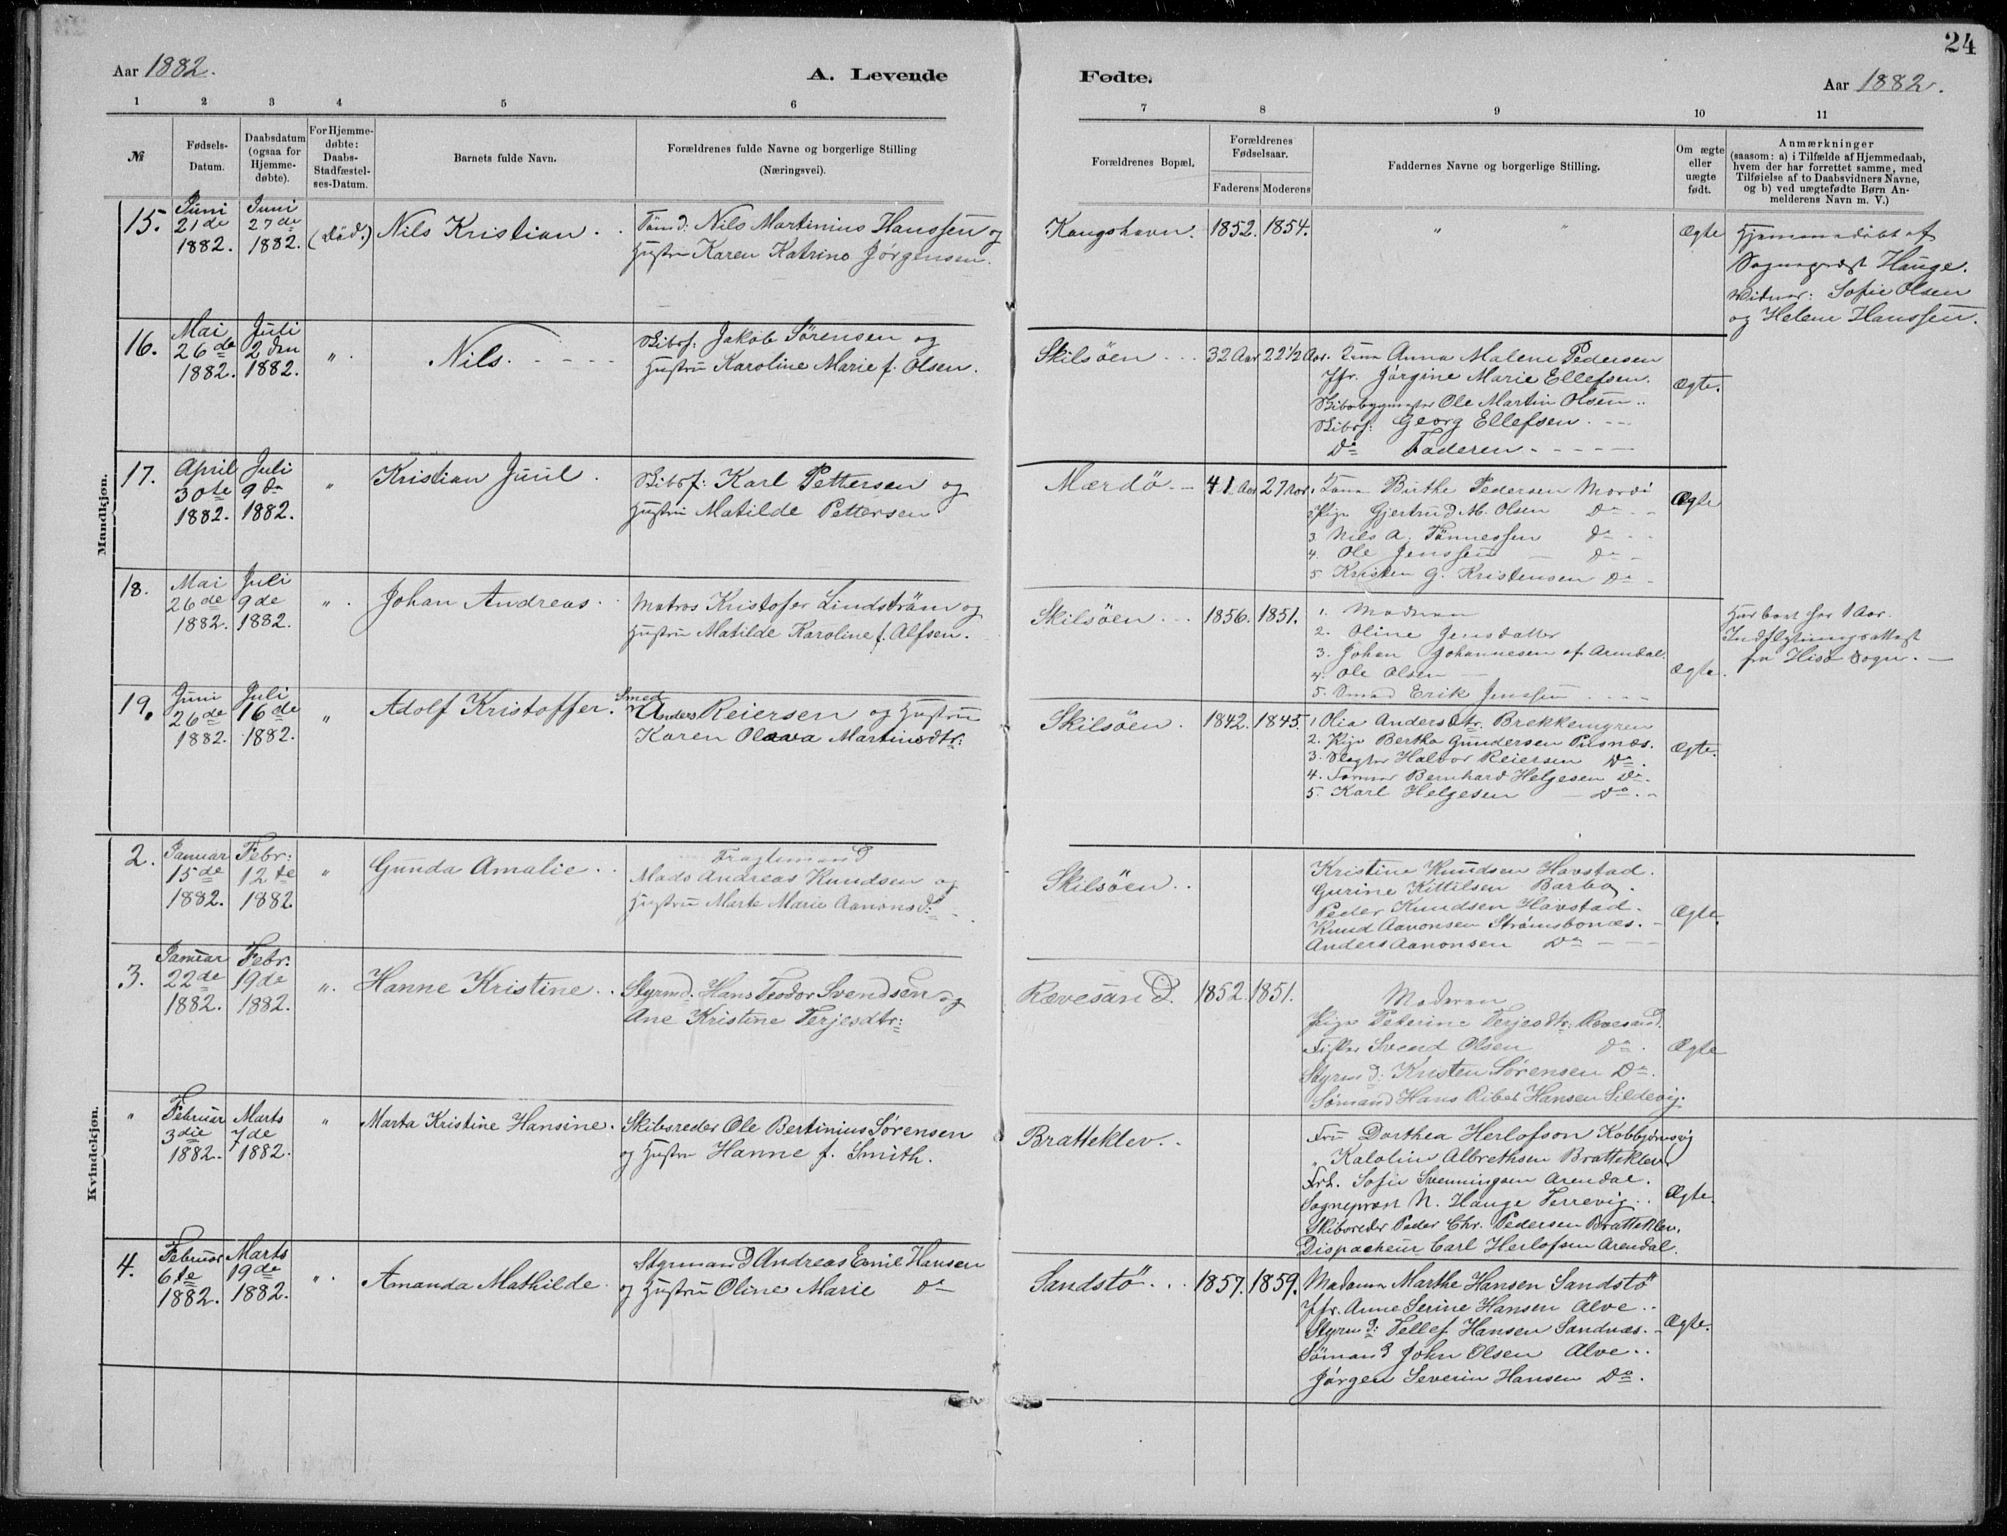 24
Aar 1882.
A. Levende Fødte.
Aar 1882.
1 2 3 4 5 6 7 8 9 10 11
№
Fødsels-Datum.
Daabsdatum (ogsaa for Hjemme-døbte).
For Hjemme-døbte: Daabs-Stadfæstel-ses-Datum.
Barnets fulde Navn.
Forældrenes fulde Navne og borgerlige Stilling (Næringsvei).
Forældrenes Bopæl.
Forældrenes Fødselsaar.
Faderens Moderens
Faddernes Navne og borgerlige Stilling.
Om ægte eller uægte født.
Anmærkninger
(saasom: a) i Tilfælde af Hjemmedaab,
hvem der har forrettet samme, med
Tilføielse af to Daabsvidners Navne,
og b) ved uægtefødte Børn An-
melderens Navn m. V.)
Mandkjøn.
15. Juni 21de 1882. Juni 27de 1882. (død.) Nils Kristian
Tømd: Nils Martinius Hanssen og
Hustru Karen Katrine Jørgensen.
Kongshavn. 1852. 1854. " " Ægte
Hjemmedøbt af
Sognepræst Hauge.
Vidner: Sofie Olsen
og Helene Hanssen.
16. Mai 26de 1882. Juli 2den 1882. " Nils.
Skibsf: Jakob Sørensen og
Hustru Karoline Marie f. Olsen.
Skilsöen 32 Aar 22 1/2 Aar.
Anna Malene Pedersen
Jfr. Jørgine Marie Ellefsen.
Skibsbygmester Ole Martin Olsen
Skibsf: Georg Ellefsen.
Do Faderen
Ægte.
17. April 30te 1882. Juli 9de 1882. " Kristian Juul
Skibsf: Karl Pettersen og
Hustru Matilde Pettersen
Mærdö 41 Aar 27 Aar.
Birthe Pedersen
Pige Gjertrud M. Olsen Do
3 Nils A. Tønnessen Do
4. Ole Jenssen Do
5 Kristen G. Kristensen Do
Ægte
18. Mai 26de 1882. Juli 9de 1882. " Johan Andreas
Matros Kristofer Lindström og
Hustru Matilde Karoline f. Alfsen.
Skilsöen 1856. 1851.
1. Moderen
2. Oline Jensdatter
3. Johan Johannesen af Arendal.
4. Ole Olsen
5. Smed Erik Jenssen
Ægte.
Har boet her 1 Aar.
Indflytningsattest
fra Hisø Sogn.
19. Juni 26de 1882. Juli 16de 1882. " Adolf Kristoffer.
Smed Anders Reiersen og Hustru
Karen Olava Martinsdtr:
Skilsöen. 1842. 1845.
1 Olia Andersdtr. Brekkemyren
2. Pige Bertha Gundersen Pusnæs.
3. Slagter Halvor Reiersen Do.
4. Former Bernhard Helgesen Do.
5. Karl Helgesen Do.
Ægte.
Kvindekjøn.
2. Januar 15de 1882. Febr: 12te 1882 " Gunda Amalie
Fragtemand
Mads Andreas Knudsen og
Hustru Marte Marie Aanonsd:
Skilsöen
Kristine Knudsen Havstad.
Gurine Kittilsen Barbo.
Peder Knudsen Havstad.
Knud Aanonsen Strømsbonæs.
Anders Aanonsen Do
Ægte.
3. Januar 22de 1882. Febr. 19de 1882. " Hanne Kristine
Styrmd: Hans Teodor Svendsen og
Ane Kristine Terjesdtr:
Rævesand. 1852. 1851.
Moderen
Pige Peterine Terjesdtr: Rævesand.
Fisker Svend Olsen Do.
Styrmd: Kristen Sørensen Do.
Sømand Hans Hansen Sildevig.
Ægte
" Februar 3die 1882. Marts 7de 1882. " Marta Kristine Hansine.
Skibsreder Ole Bertinius Sørensen
og Hustru Hanne f. Smith.
Bratteklev
Fru Dorthea Herlofson Kobbjørnsvig
" Kaloline Albrethsen Bratteklev
Frk. Sofie Svenningsen Arendal.
Sogneprest N. Hauge Terrevig
Skibsreder Peder Chr. Pedersen Bratteklev.
Dispacheur Carl Herlofsen Arendal.
Ægte.
4. Februar 6te 1882. Marts 19de 1882. " Amanda Mathilde
Styrmand Andreas Emil Hansen
og Hustru Oline Marie Do
Sandstö 1857. 1859.
Madame Marthe Hansen Sandstö
Jfr. Anne Serine Hansen Alve
Styrmd: Tellef Hansen Sandnæs.
Sömand John Olsen Alve
Jørgen Severin Hansen Do.
Ægte.